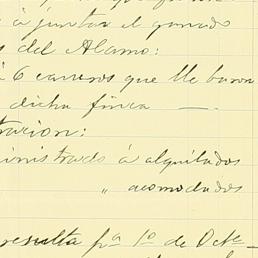 á juntar el ganado
del Alamo:
á 6 carros que lle baron
dicha finca —.
tracion:
ministrado á alquilados
" acomodados
resulta pª 1º de Octe-